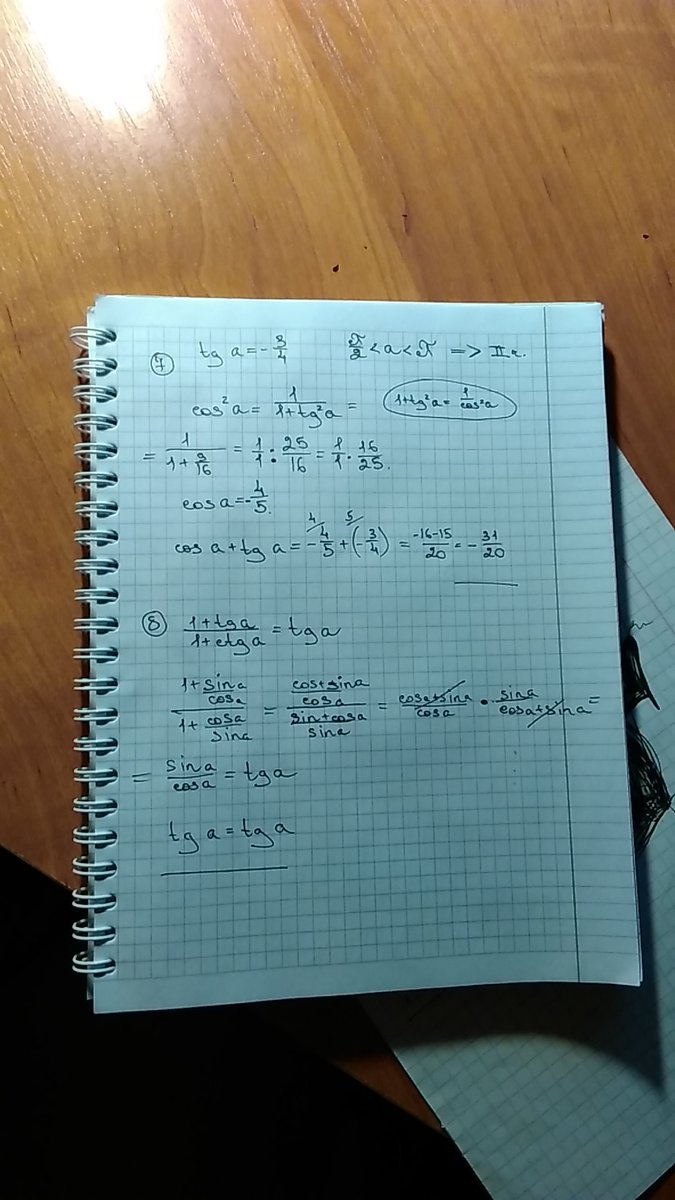 ⑦ tg a = -3/4 π/2 < a < π => II ч.
cos²a = 1/(1+tg²a) = (1+tg²a = 1/cos²a)
= 1/(1+9/16) = 1/1 : 25/16 = 1/1 · 16/25.
cos a = -4/5.
cos a + tg a = -4/5 + (-3/4) = (-16-15)/20 = -31/20
⑧ (1+tg a)/(1+ctg a) = tg a
(1+sin a/cos a)/(1+cos a/sin a) = ((cos+sin a)/cos a)/((sin+cos a)/sin a) = (cos a+sin a)/cos a · sin a/(cos a+sin a) =
= sin a/cos a = tg a
tg a = tg a